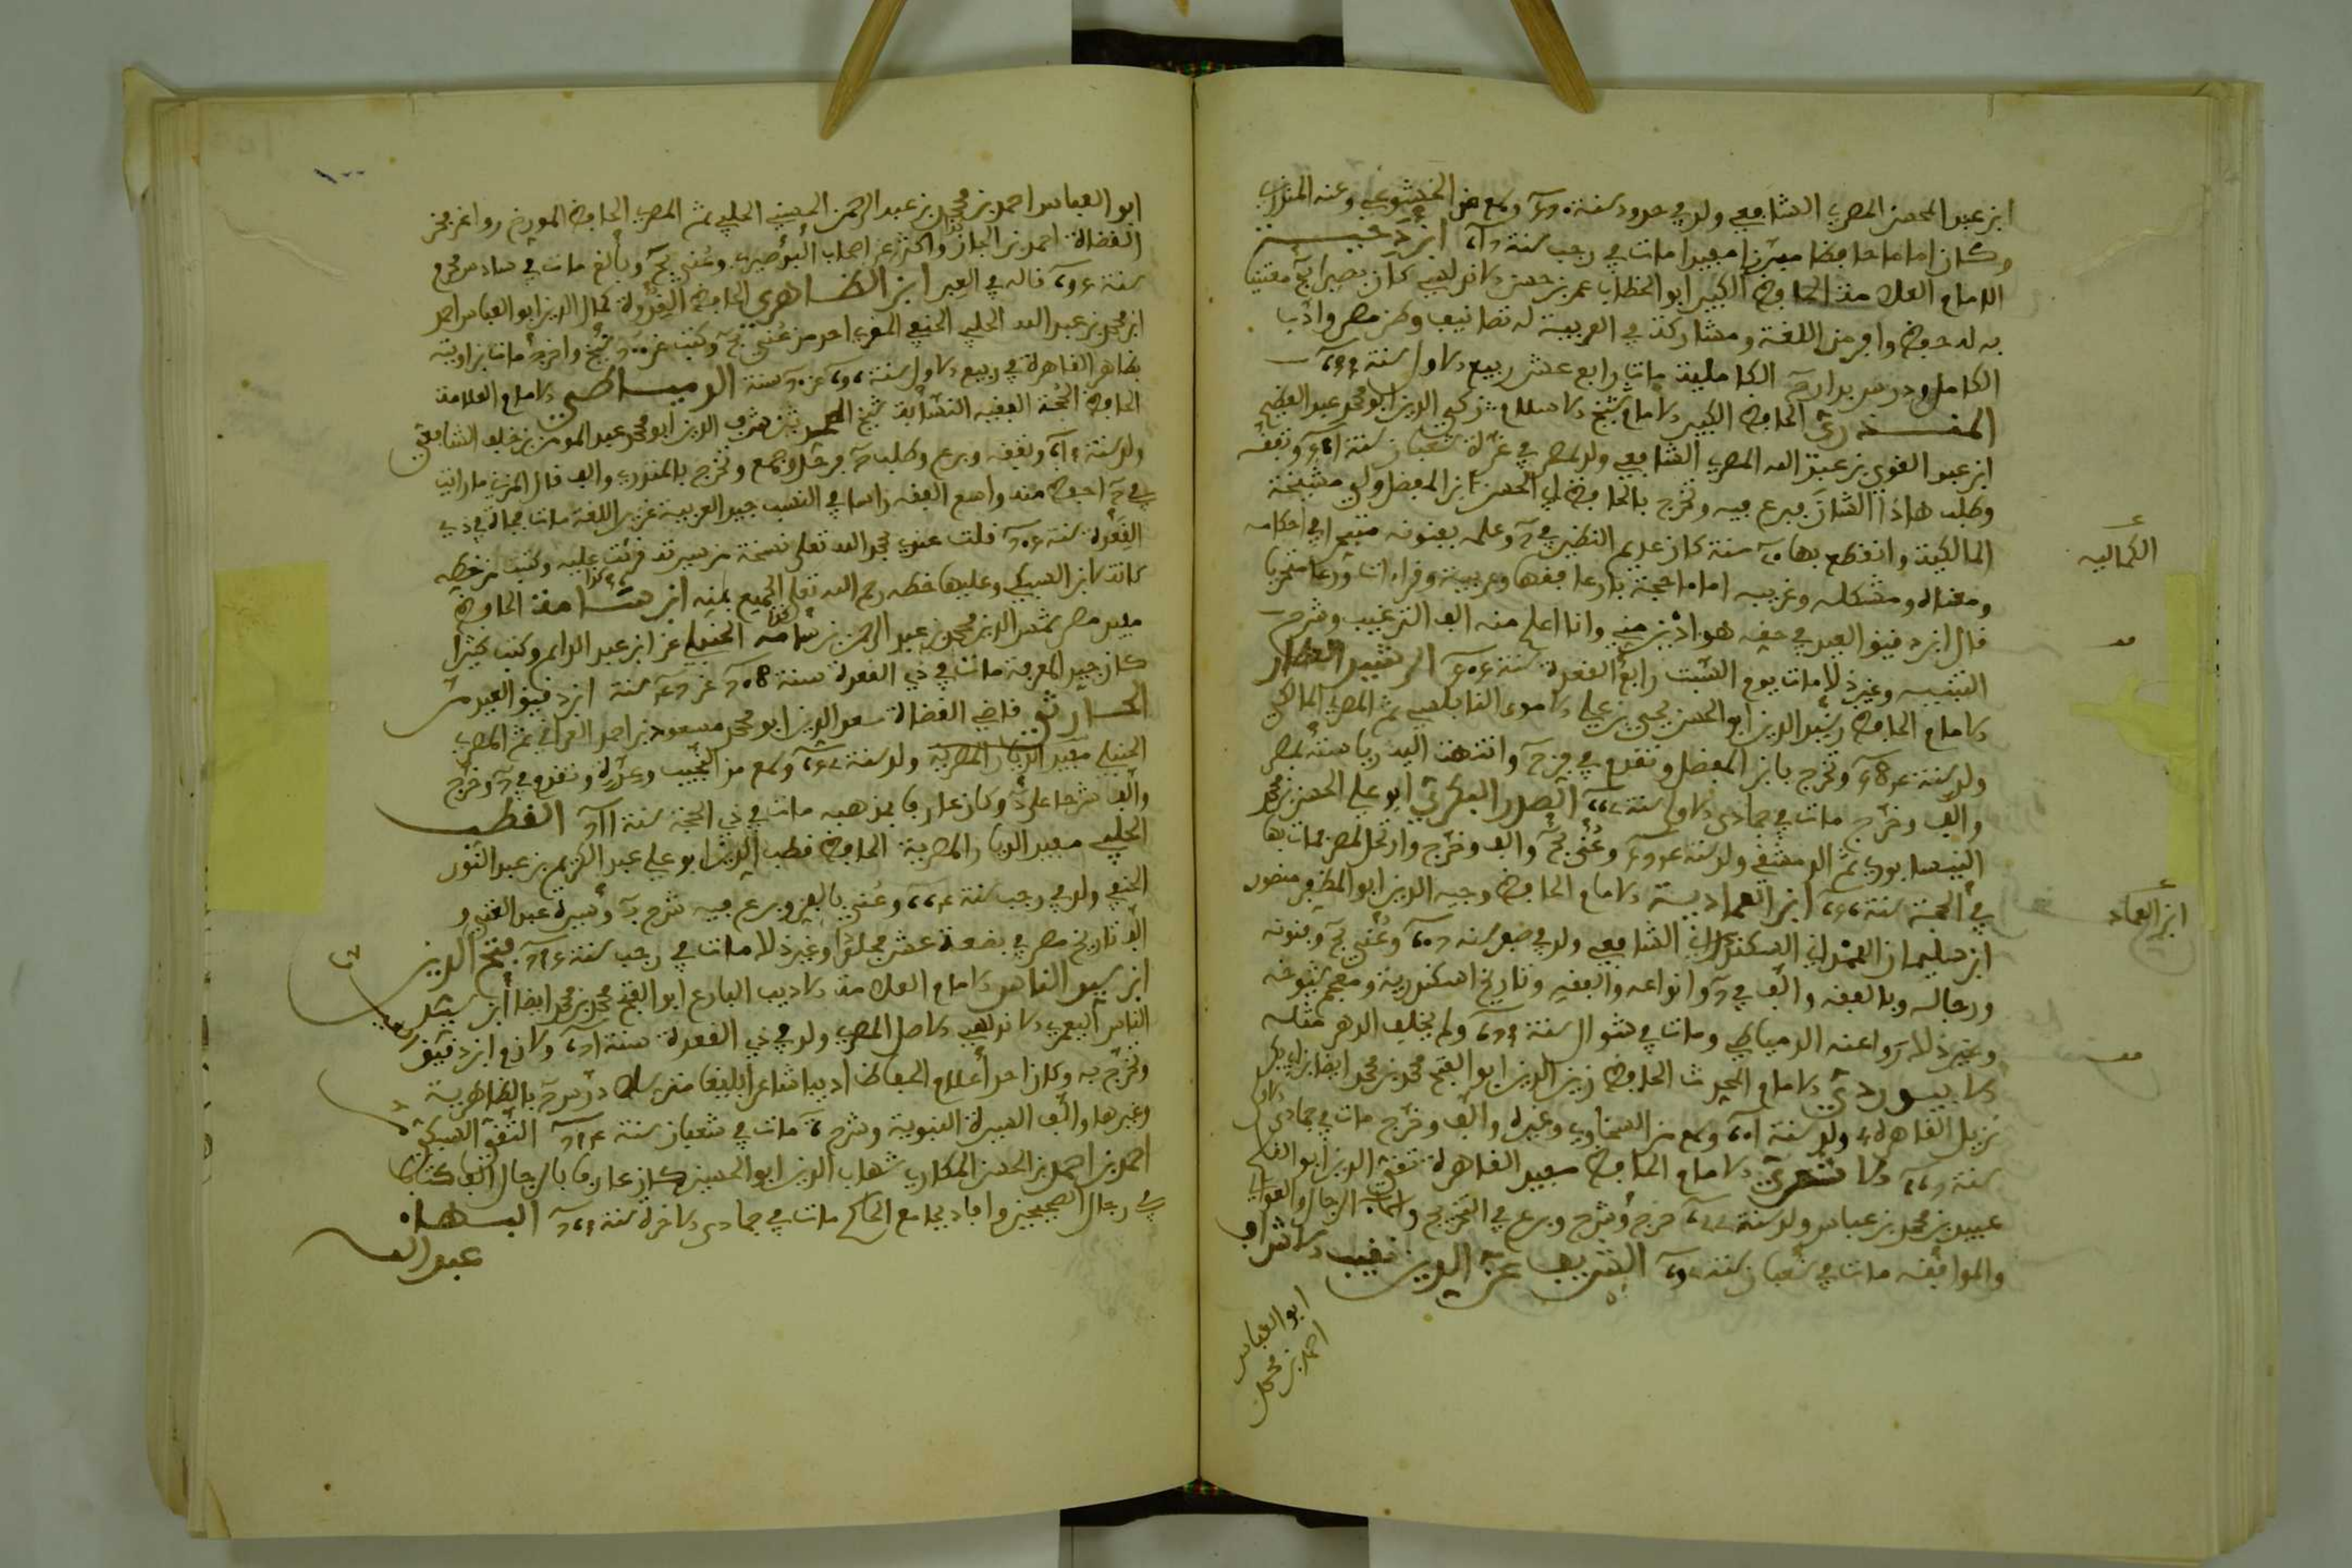 ابن عبد المحسن المصري الشافعي ولد في حدود سنة وسمع من الخشوعي وعنه المنذري
وكان اماما حافظا مبرزا مفيدا مات في رجب سنة ابن دحيــة
الامام العلامة الحافظ الكبير ابو الخطاب عمر بن حسن الاندلسي كان بصيرا بح معتنيا
به له حظ وافر من اللغة ومشاركة في العربية له تصانيف وطن مصر وادب
الكامل ودرس بدار ح الكاملية مات رابع عشر ربيع الاول سنة
المنـــذري الحافظ الكبير الامام شيخ الاسلام زكي الدين ابو محمد عبد العظيم
ابن عبد القوي بن عبد الله المصري الشافعي ولد بمصر في غرة شعبان سنة وتفقه
وطلب هاذا الشان فبرع فيه وتخرج بالحافظ ابي الحسن ابن المفضل وولي مشيخة
الكمالية
المالكية وانقطع بها سنة كان عديم النظير في ح وعلمه بفنونه متبحرا في احكامه
ومعناه ومشكله وغريبه اماما حجة بارعا فقها وعربية وقراءات ورعا متحريا
قال ابن دقيق العيد في حقه هو ادين مني وانا اعلم منه الف الترغيب وشرح
التنبيه وغير ذلا مات يوم السبت رابع القعدة سنة الرشيد العطار
الامام الحافظ رشيد الدين ابو الحسن يحيى بن علي الاموي النابلسي ثم المصري المالكي
ولد سنة وتخرج بابن المفضل وتقدم في فن ح وانتهت اليه رياسته بمصر
والف وخرج مات في جمادى الاولى سنة الصدر البكري ابو علي الحسن بن محمد
النيسابوري ثم الدمشقي ولد سنة وعُني بح والف وخرج وارتحل لمصر فمات بها
في الحجة سنة ابن العمادية الامام الحافظ وجيه الدين ابو المظفر منصور
ابن العماد
ابن سليمان الهمداني السكندراني الشافعي ولد في صفر سنة وعُني بح وفنونه
ورجاله وبالفقه والف في ح وانواعه والفقه وتاريخ اسكندرية ومعجم شيوخه
وغير ذلا روا عنه الدمياطي ومات في شوال سنة ولم يخلف الدهر مثله
الابيـوردي الامام المحدث الحافظ زين الدين ابو الفتح محمد بن محمد ايضا ابن ابي بكر
نزيل القاهرة ولد سنة وسمع من السخاوي وغيره والف وخرج مات في جمادى الاولى
سنة الاسعردي الامام الحافظ مفيد القاهرة تقي الدين ابو القاسم
عبيد بن محمد بن عباس ولد سنة خرج وشرح وبرع في التخريج واسماء الرجال والعوالي
والموافقه مات في شعبان سنة الشريف عز الدين نقيب الاشراف
ابو العباس
احمد بن محمد
ابو العباس احمد بن محمد بن عبد الرحمن الحسيني الحلبي ثم المصري الحافظ المورخ روا عن فخر
القضاة احمد بن الجباز واكثر عن اصحاب البوصيري وعُني بح وبالغ مات في سادس محرم
سنة قاله في العبر ابن الظـاهري الحافظ القدوة جمال الدين ابو العباس احمد
ابن محمد بن عبد الله الحلبي الحنفي المقرئ احد من عُني بح وكتب عن شيخ واخرج مات بزاويته
بظاهر القاهرة في ربيع الاول سنة عن سنة الدميـاطي الامام العلامة
الحافظ الحجة الفقيه النسابة شيخ شرف الدين ابو محمد عبد المومن بن خلف الشافعي
ولد سنة وتفقه وبرع وطلب ح فرحل وجمع وتخرج بالمنذري والف قال المزي ما رايت
في ح احفظ منه واسع الفقه راسا في النسب جيد العربية غزير اللغة مات فجاة في ذي
القعدة سنة قلت عندي بحمد الله تعلى نسخة من سيرته قرئت عليه وكتبت من خطه
كاتبه ابن السبكي وعليها خطه رحم الله تعلى الجميع بمنه ابن شـامة الحافظ
مفيد مصر شمس الدين محمد بن عبد الرحمن بن شامة الحنبلي عن ابن عبد الدايم وكتب كثيرا
كان جيد المعرفة مات في ذي القعدة سنة عن سنة ابن دقيق العيد مر
الحـارثي قاضي القضاة سعد الدين ابو محمد مسعود بن احمد العراقي ثم المصري
الحنبلي مفيد الديار المصرية ولد سنة وسمع من النجيب وعدة وتقدم في ح وخرج
والف شرحا على د وكان عارفا بمذهبه مات في ذي الحجة سنة القطب
الحلبي مفيد الديار المصرية الحافظ قطب الدين ابو علي عبد الكريم بن عبد النور
الحنفي ولد في رجب سنة وعُني بالفن وبرع فيه شرح وسيرة عبد الغني و
الف تاريخ مصر في بضعة عشر مجلدا وغير ذلا مات في رجب سنة فتح الدين
ابن سيد الناس الامام العلامة الاديب البارع ابو الفتح محمد بن محمد ايضا ابن سيد
الناس اليعمري الاندلسي الاصل المصري ولد في ذي القعدة سنة ولازم ابن دقيق
وتخرج به وكان احد اعلام الحفاظ اديبا شاعرا بليغا درس ح بالظاهرية
وغيرها والف السيرة النبوية وشرح مات في شعبان سنة التقي السبكي
احمد بن احمد بن الحسن الهكاري شهاب الدين ابو الحسين كان عارفا بالرجال الف كتابا
في رجال الصحيحين وافاد بجامع الحاكم مات في جمادى الاخرة سنة البـهاء
عبد الله